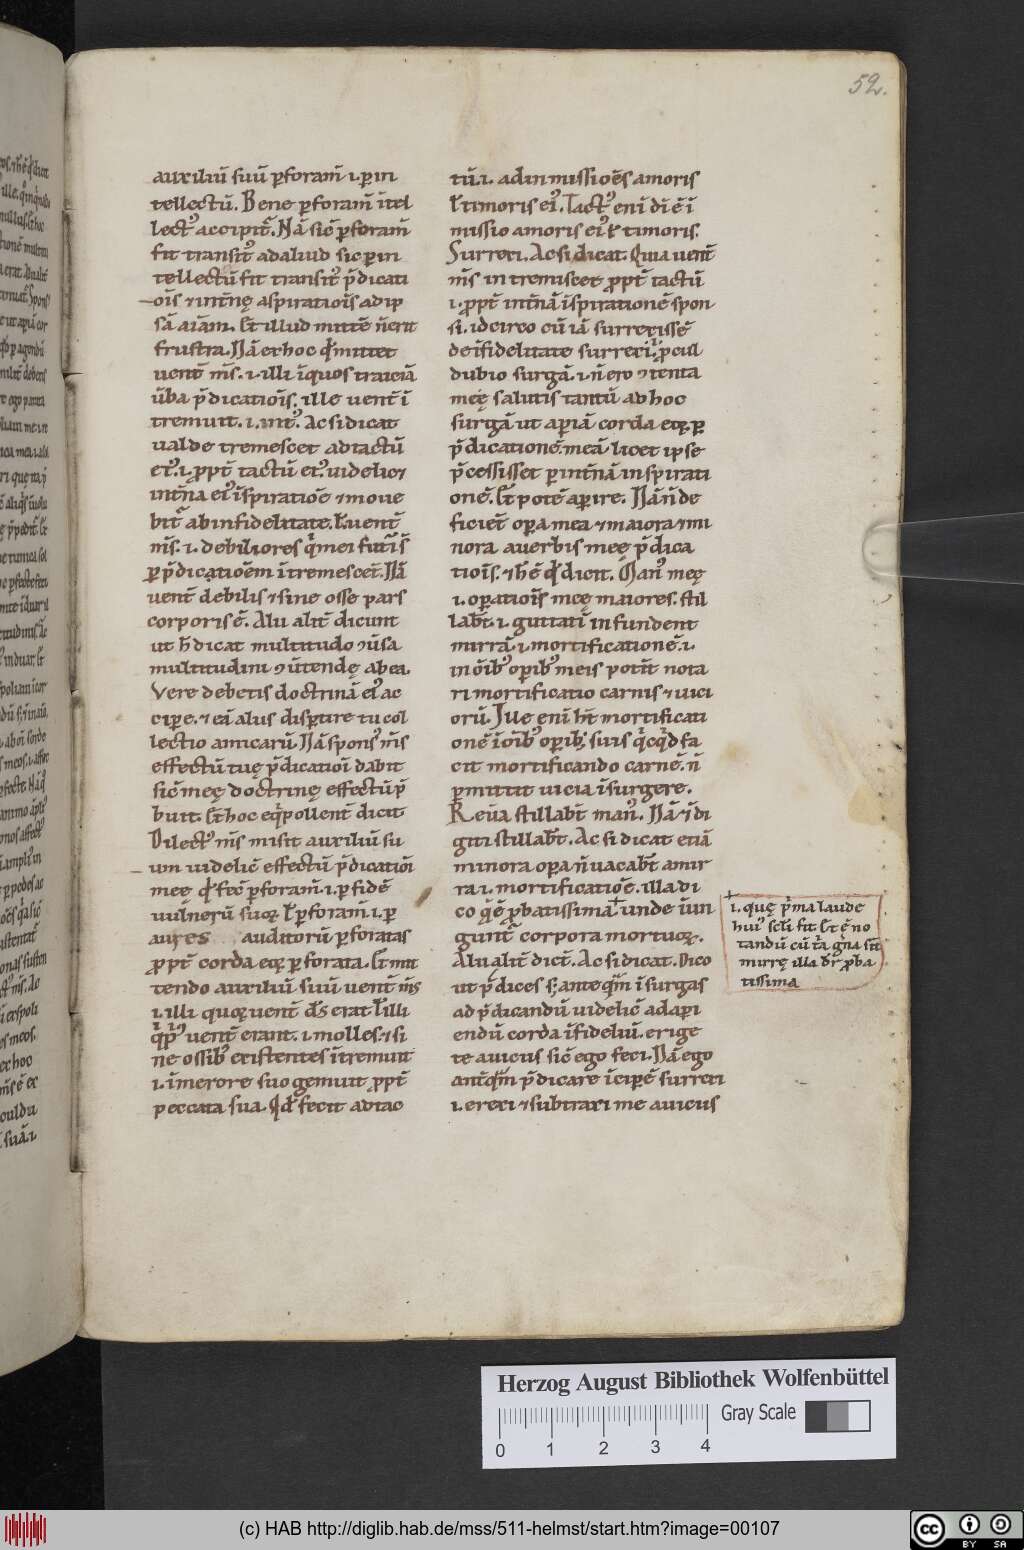 52.
auxiliū suū ꝑforam̄ .i. ꝑ in
tellectū. Bene ꝑforam̄ ītel
lectꝰ accipit̄. Nā sic̄ ꝑforam̄
fit transitꝰ ad aliud sic ꝑ in
tellectū fit transitꝰ p̄dicati
ōis ⁊ int̄nę aspiratiōis ad ip
sā aīam. Et illud mitte n̄ erit
frustra. Nā ex hoc
uent̄ m̄s. i. illi ī quos traiciā
ūba p̄dicatiōis. ille uent̄ ī
tremuit. i. int̄. Ac si dicat
ualde tremescet ad tactū
eiꝰ. i. ꝓpt̄ tactū eiꝰ uidelic⁊
int̄na eiꝰ īspiratiōe ⁊ moue
bit̄ ab infidelitate. ł uent̄
m̄s. i. debiliores
ꝑ p̄dicatiōem ītremescet. Nā
uent̄ debilis ⁊ sine osse pars
corporis ē. Alii alit̄ dicunt
ut h̄ dicat multitudo
multitudini
Vere debetis doctrinā eiꝰ ac
cipe. ⁊ eā aliis disꝑtire tu col
lectio amicarū. Nā sponsꝰ m̄s
effectū tuę p̄dicatiōi dabit
sic̄ meę doctrinę effectū p̄
buit. Et hoc eq̇pollent̄ dicit
Dilectꝰ m̄s misit auxiliū su
um uidelic̄ effectū p̄dicatiōi
meę ꝑforam̄ .i. ꝑ fidē
uuln̄erū suoꝝ ł ꝑforam̄ .i. ꝑ
aures auditorū ꝑforatas
ꝓpt̄ corda eoꝝ ꝑforata. Et mit
tendo auxiliū suū uent̄ m̄s
.i. illi quoꝝ uent̄ d̄s erat ł illi
uent̄ erant .i. molles. ⁊ si
ne ossibꝰ existentes ītremuit
.i. ī merore suo gemuit ꝓpt̄
peccata sua. Qd̄ fecit ad tac
tū .i. ad inmissiōēs amoris
ł timoris eiꝰ. Tactꝰ enī dī ē ī
missio amoris eiꝰ ł timoris.
Surrexi. Ac si dicat. Quia uent̄
m̄s intremiscet ꝓpt̄ tactū
.i. ꝓpt̄ int̄nā īspirationē spon
si. idcirco cū iā surrexissē
de īfidelitate surrexi. ꝓcul
dubio surgā .i. n̄ ero ⁊tenta
meę salutis tantū ad hoc
surgā ut aꝑiā corda eoꝝ ꝑ
p̄dicationē meā licet ipse
p̄cessisset ꝑ int̄nā inspirati
onē. Et potē aꝑire. Nā n̄ de
ficiēt oꝑa mea ⁊ maiora ⁊ mi
nora a uerbis meę p̄dica
tiōis. ⁊ h̄ ē dicit. Manꝰ meę
.i. oꝑatiōis meę maiores. stil
labt̄ .i. guttatī infundent
mirrā .i. mortificationē .i.
in ōībꝰ oꝑibꝰ meis potit̄ nota
ri mortificatio carnis ⁊ uici
orū. Ille enī ht̄ mortificati
onē ī ōībꝰ oꝑibꝰ suis fa
cit mortificando carnē. n̄
ꝑmittit uicia īsurgere.
Reūa stillabt̄ manꝰ. Nā ⁊ di
giti stillabt̄. Ac si dicat etiā
minora oꝑa n̄ uacabt̄ a mir
ra .i. mortificatiōe. illa di
co ꝓbatissima unde
gunt̄ corpora mortuoꝝ.
Alii alit̄ dict̄. Ac si dicat. Dico
ut p̄dices s; anteq̄m īsurgas
ad p̄dicandū uidelic̄ adaꝑi
endū corda īfideliū. erige
te a uiciis sic̄ ego feci. Nā ego
anteq̄m p̄dicare īciꝑē surrexi
.i. erexi ⁊ subtraxi me a uiciis
.i. quę p̄ma laude
huiꝰ scłi fit. Et ē no
tandū
mirrę illa dr̄ ꝓba
tissima
Herzog August Bibliothek Wolfenbüttel
Gray Scale
0 1 2 3 4
(c) HAB http://diglib.hab.de/mss/511-helmst/start.htm?image=00107
cc BY SA